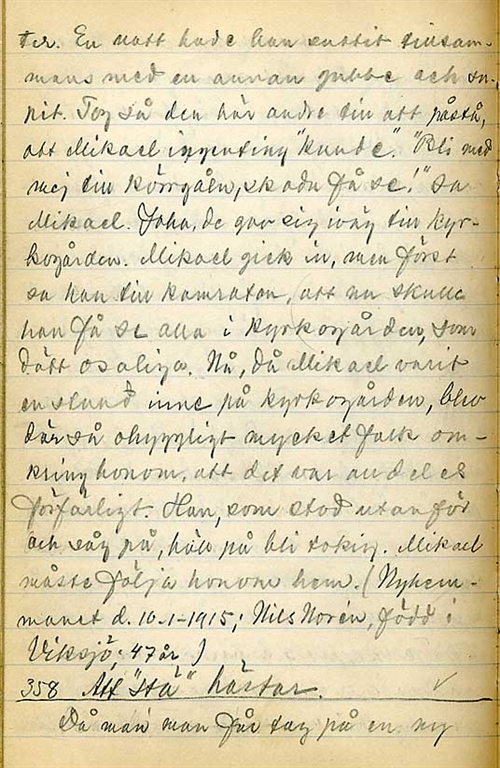 ter. En natt hade han suttit tillsam-
mans med en annan gubbe och su-
pit. Tog så den här andre till att påstå,
att Mikael ingenting "kunde". "Bli med
mej till körrgåln, ska du få se!" sa
Mikael. Joha, de gav sig iväg till kyr-
kogården. Mikael gick in, men först
sa han till kamraten, att nu skulle
han få se alla i kyrkogården, som
dött osaliga. Nå, då Mikael varit
en stund inne på kyrkogården, blev
där så ohyggligt mycket folk om-
kring honom, att det var alldeles
förfärligt. Han, som stod utanför
och såg på, höll på bli tokig. Mikael
måste följa honom hem. (Nyhem-
manet d. 10-1-1915; Nils Norén, född i
Viksjö; 47 år.)
358 Att "stä" hästar.
Då man man får tag på en ny